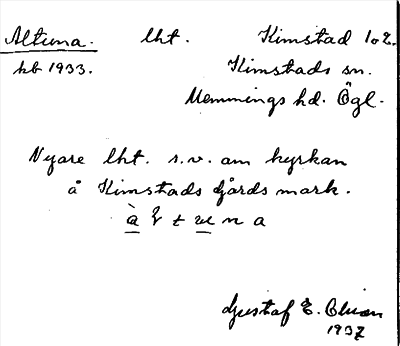 Altuna. lht. Kimstad 1o2.
kb 1933. Kimstads sn.
Memmings hd. Ögl.
Nyare lht. s.v. om kyrkan
å Kimstads Gårds mark.
Gustaf E.
1937